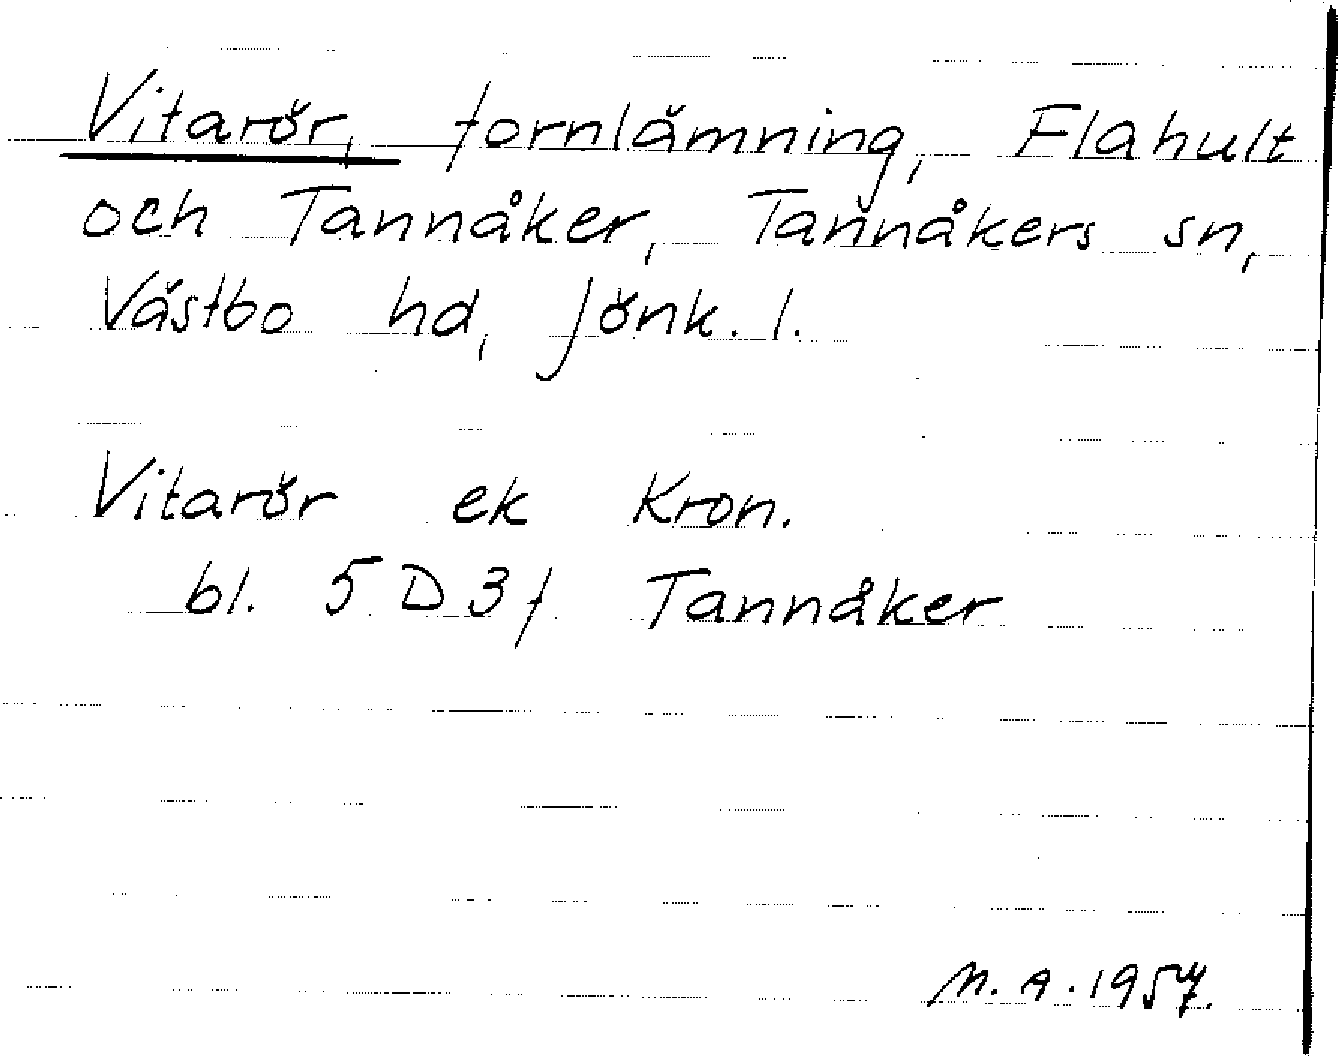 Vitarör, fornlämning, Flahult
och Tannåker, Tannåkers sn,
Västbo hd, Jönk. l.
Vitarör ek Kron.
bl. 5 D 3 f Tannåker
M. A. 1957.